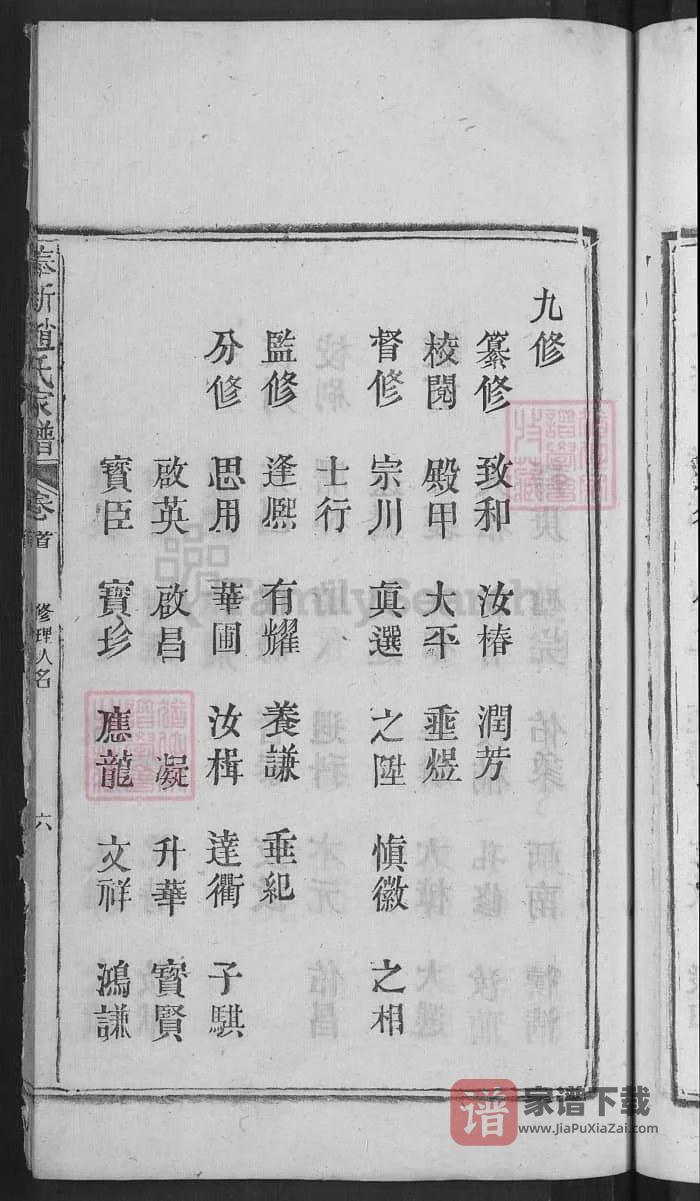 九修
纂修 致和 汝椿 潤芳
校閱 殿甲 大平 垂煜
督修 宗川 真選 之陞 慎徽 之相
士行
監修 逢熙 有耀 養謙 垂紀
分修 思用 華圃 汝楫 達衢 子騏
啟英 啟昌 凝 升華 寶賢
寶臣 寶珍 應龍 文祥 鴻謙
奉新趙氏家譜 卷首 修理人名 六
FamilySearch
谱 家谱下载
www.JiaPuXiaZai.com